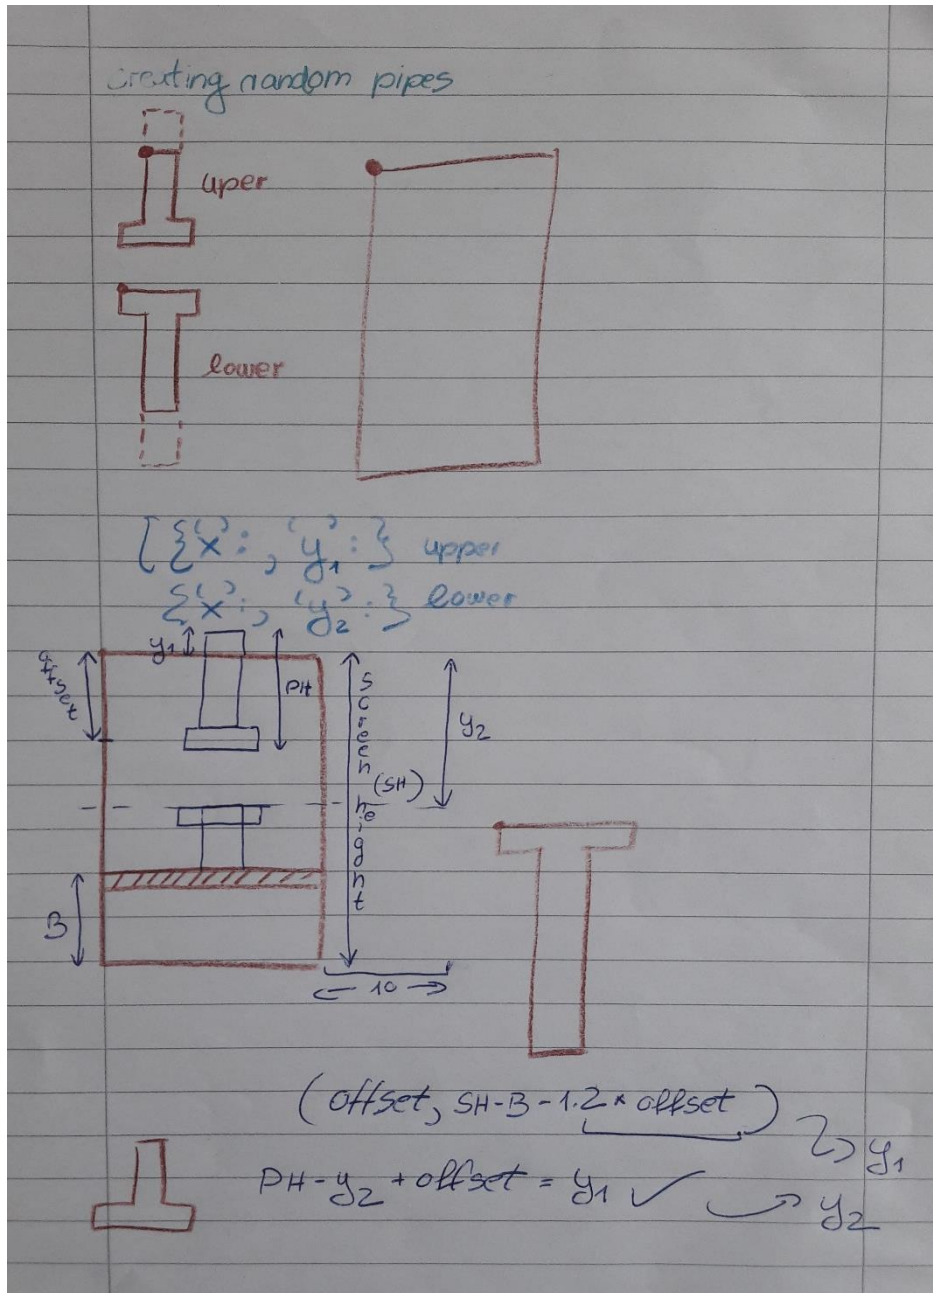 Creating random pipes
uper
lower
[{'x':, 'y1':} upper
{'x':, 'y2':} lower
y1
offset
PH
Screen height
(SH)
y2
B
10
(offset, SH-B-1.2* offset)
y1
PH-y2+offset = y1 ✓
y2